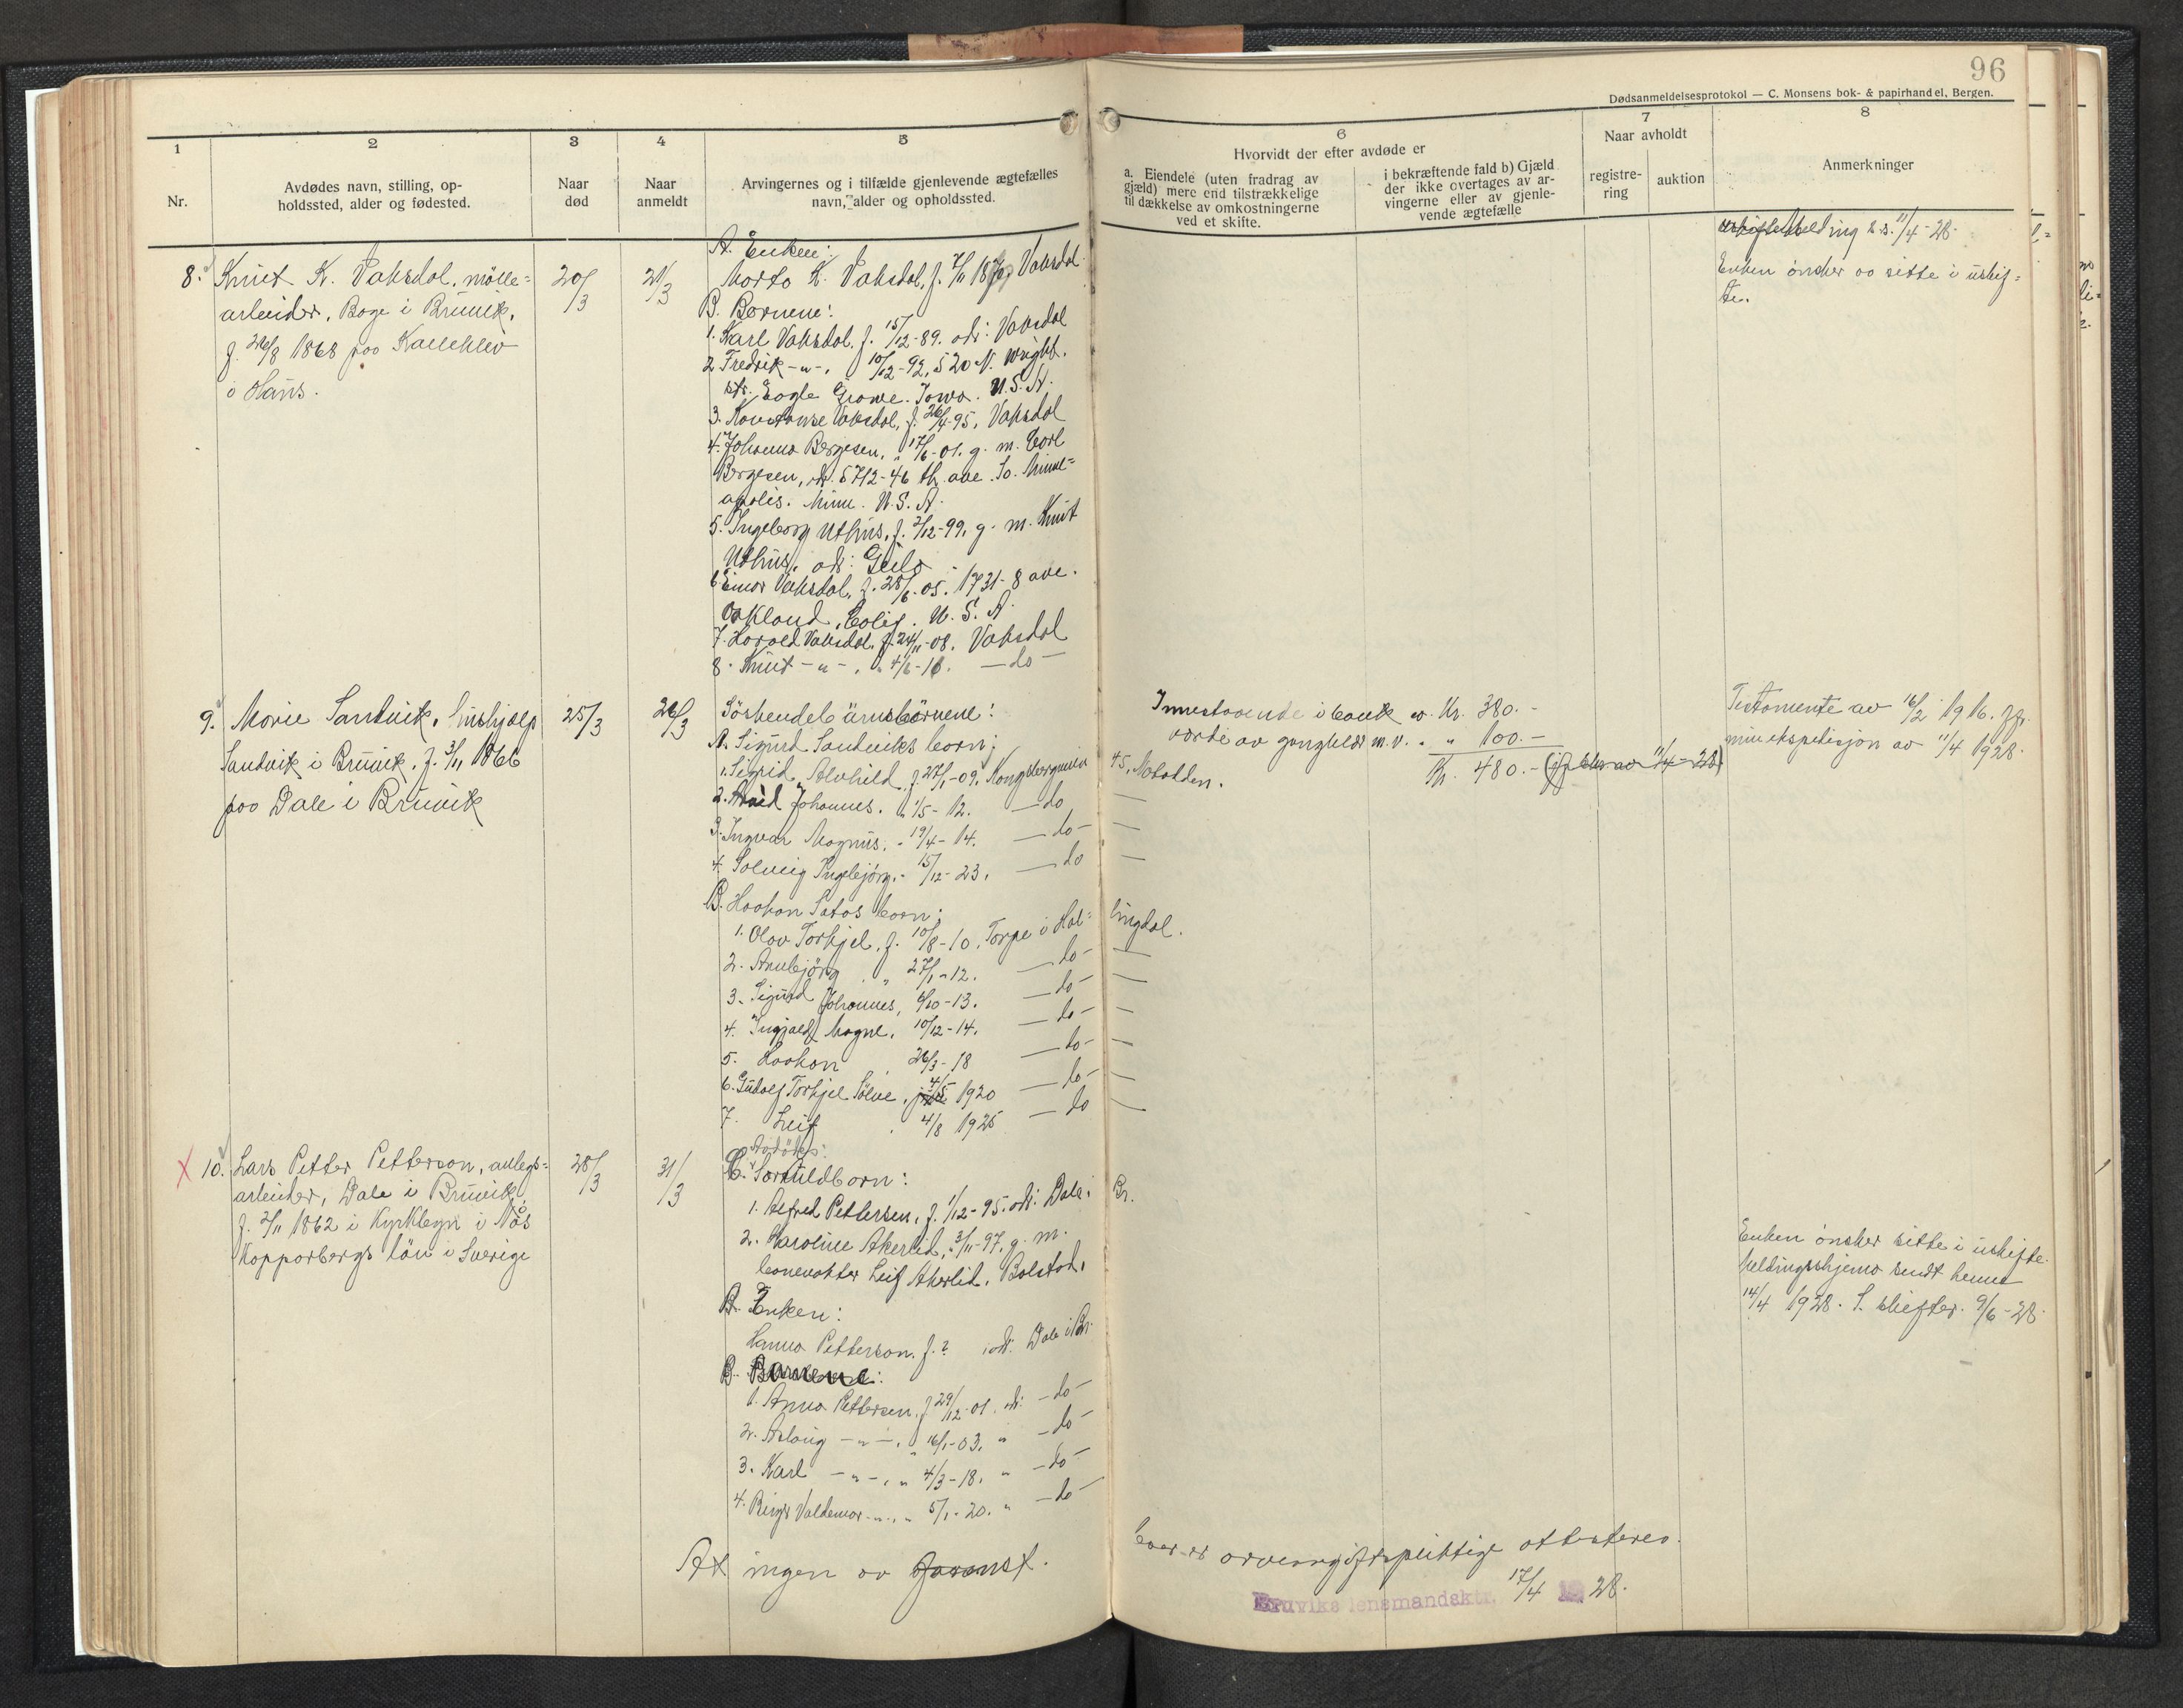 96
Dødsanmeldelsesprotokol — C. Monsens bok- & papirhandel, Bergen.
1
Nr.
2
Avdødes navn, stilling, op-
holdssted, alder og fødested.
3
Naar
død
4
Naar
anmeldt
5
Arvingernes og i tilfælde gjenlevende ægtefælles
navn, alder og opholdssted.
6
Hvorvidt der efter avdøde er
a. Eiendele (uten fradrag av
gjæld) mere end tilstrækkelige
til dækkelse av omkostningerne
ved et skifte.
i bekræftende fald b) Gjæld
der ikke overtages av ar-
vingerne eller av gjenle-
vende ægtefælle
7
Naar avholdt
registre-
ring
auktion
8
Anmerkninger
8.
Knut K. Vaksdal, mölle=
arbeider, Boge i Bruvik,
f. 26/8 1868 paa
i Haus.
20/3
21/3
A. Enken:
Marta K. Vaksdal, f. Vaksdal
B. Børnene:
1. Karl Vaksdal, f. 15/12-89. adr: Vaksdal
2. Fredrik -"-, 10/12-92, 520 N. Wright.
str. Eagle Growe. Iowa. U.S.A.
3. Konstanse Vaksdal, f. 26/4-95, Vaksdal
4. Johanna Bergesen, " 17/6-01. g. m. Carl
Bergesen, adr. 5712-46 th ave. So. Minne=
apolis. Minn. U.S.A.
5. Ingeborg Uthus, f. 2/12-99, g. m. Knut
Uthus, adr:
6. Einar Vaksdal, f. 28/6-05. 1731-8 ave.
Oakland, Calif. U.S.A.
7. Harald Vaksdal, f. 24/11-08. Vaksdal
8. Knut -"-, " 4/6-16. — do —
11/4-28
Enken ønsker aa sitte i uskif=
te.
9.
Marie Sandvik, hushjælp
Sandvik i Bruvik, f. 3/11 1866
paa Dale i Bruvik
25/3
26/3
Söskendebarnsbörnene:
A. Sigurd Sandviks born:
1. Sigrid Alvhild, f. 27/1-09. 45, Notodden.
2. Johannes. " 1/5-12. — do —
3. Ingvar Magnus. - 19/4-14. — do —
4. Solveig Ingebjørg. - 15/12-23. — do —
B. Haakon Satas born:
1. Olav Torkjel, f. 10/8-10, Torpe i Hal=lingdal.
2. Annbjörg " 27/1-12. — do —
3. Sigurd Johannes, 6/10-13. — do —
4. Ingjald Magne. 10/12-14. — do —
5. Haakon 26/3-18 — do —
6. Gudolf Torkjel Sölve, 4/5 1920 — do —
7. Leif 4/8 1925 — do —
Innestaaende i bank ca. Kr. 380.-
værdi av gangklær m.v. " " 100.-
Kr. 480.- (jfr. skr av 11/4-28)
Testamente av 16/2 1916. Jfr.
min ekspedisjon av 11/4 1928.
X 10.
Lars Petter Petterson, anlegs=
arbeider, Dale i Bruvik,
f. 2/11 1862 i Kyrkbyn i Nås
Kopparbergs län i Sverige
28/3
31/3
Avdødes:
C. Særkuldborn:
1. Alfred Pettersen, f. 1/12-95. adr: Dale i Br.
2. Karoline Akerlid, " 3/11-97, g. m.
banevokter Leif Akerlid, Bolstad,
A. Enken:
Hanna Petterson. f. ? adr. Dale i Br.
B. Barnene:
1. Anna Pettersen, f. 29/12-01. adr: — do —
2. Aslaug -"-, " 16/1-03. " — do —
3. Karl -"-, " 4/3-18. " — do —
4. Valdemar -"-, " 5/1-20. " — do —
Enken ønsker sitte i uskifte.
Meldingsskjema sendt henne
14/4 1928. S. skifter. 9/6-28.
At ingen av
er arveavgiftspliktige attesteres.
Bruviks lensmandsktr. 17/4 1928.